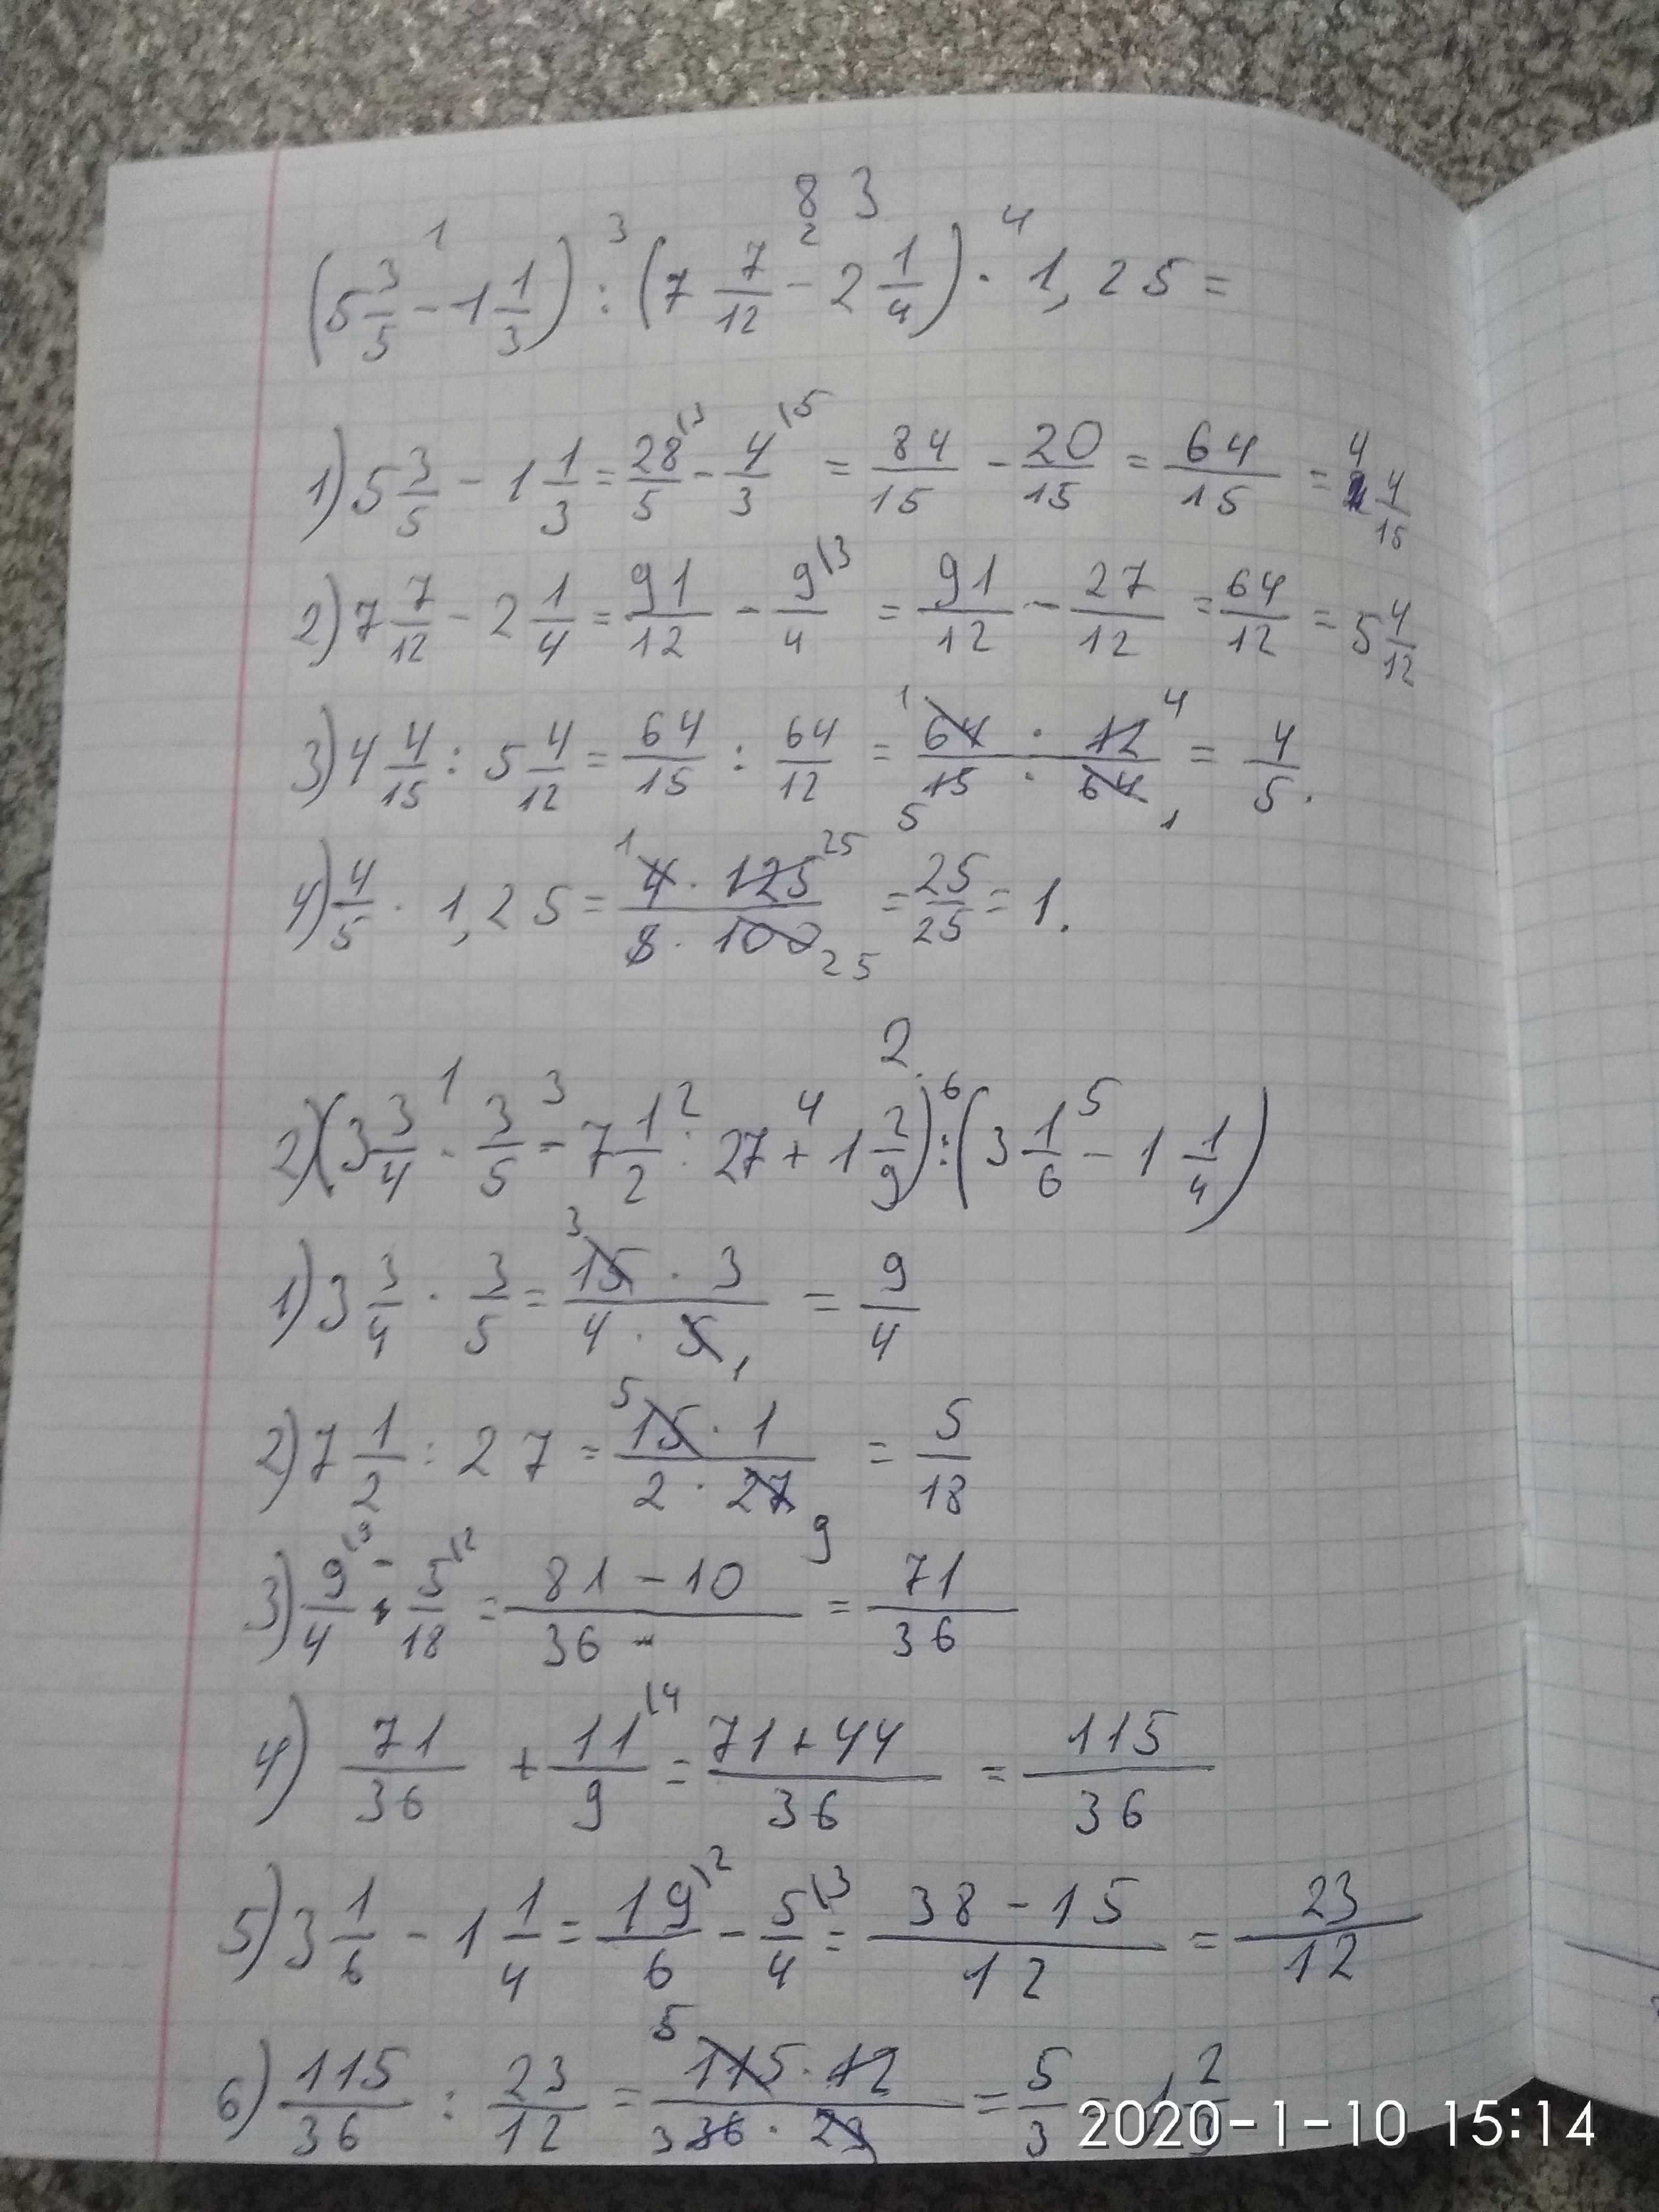 83
(5 3/5 - 1 1/3) : (7 7/12 - 2 1/4) · 1,25 =
1) 5 3/5 - 1 1/3 = 28/5 - 4/3 = 84/15 - 20/15 = 64/15 = 4 4/15
2) 7 7/12 - 2 1/4 = 91/12 - 9/4 = 91/12 - 27/12 = 64/12 = 5 4/12
3) 4 4/15 : 5 4/12 = 64/15 : 64/12 = 64 : 12 / 15 : 64 = 4/5.
4) 4/5 · 1,25 = 4 · 125 / 5 · 100 = 25/25 = 1.
2
2) (3 3/4 · 3/5 - 7 1/2 : 27 + 1 2/9) : (3 1/6 - 1 1/4)
1) 3 3/4 · 3/5 = 15 · 3 / 4 · 5 = 9/4
2) 7 1/2 : 27 = 15 · 1 / 2 · 27 = 5/18
3) 9/4 - 5/18 = 81 - 10 / 36 = 71/36
4) 71/36 + 11/9 = 71 + 44 / 36 = 115/36
5) 3 1/6 - 1 1/4 = 19/6 - 5/4 = 38 - 15 / 12 = 23/12
6) 115/36 : 23/12 = 115 · 12 / 36 · 23 = 5/3 = 1 2/3
2020-1-10 15:14